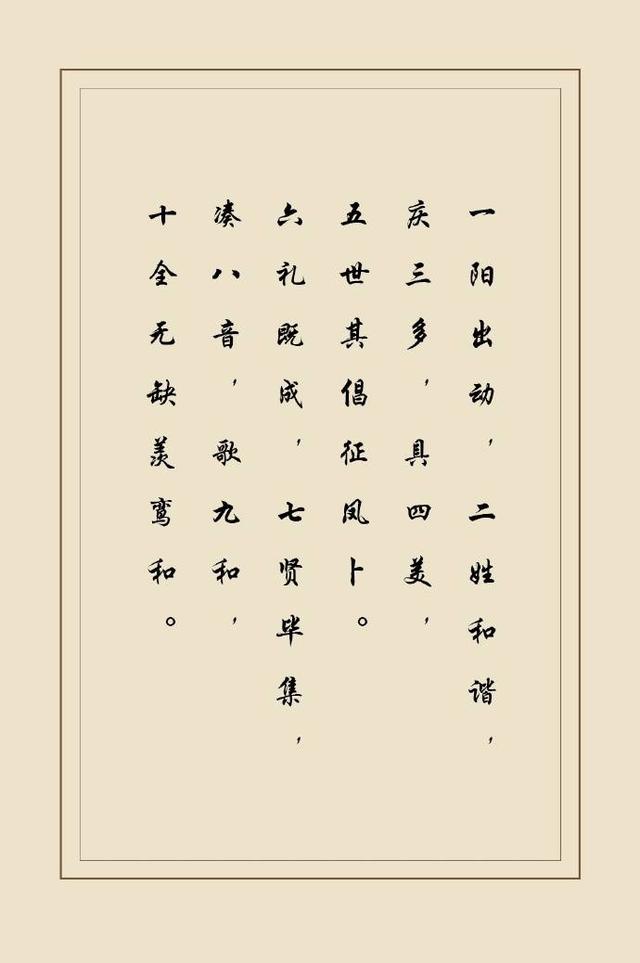 一阳出动，二姓和谐，
庆三多，具四美，
五世其倡征凤卜。
六礼既成，七贤毕集，
凑八音，歌九和，
十全无缺羡鸾和。